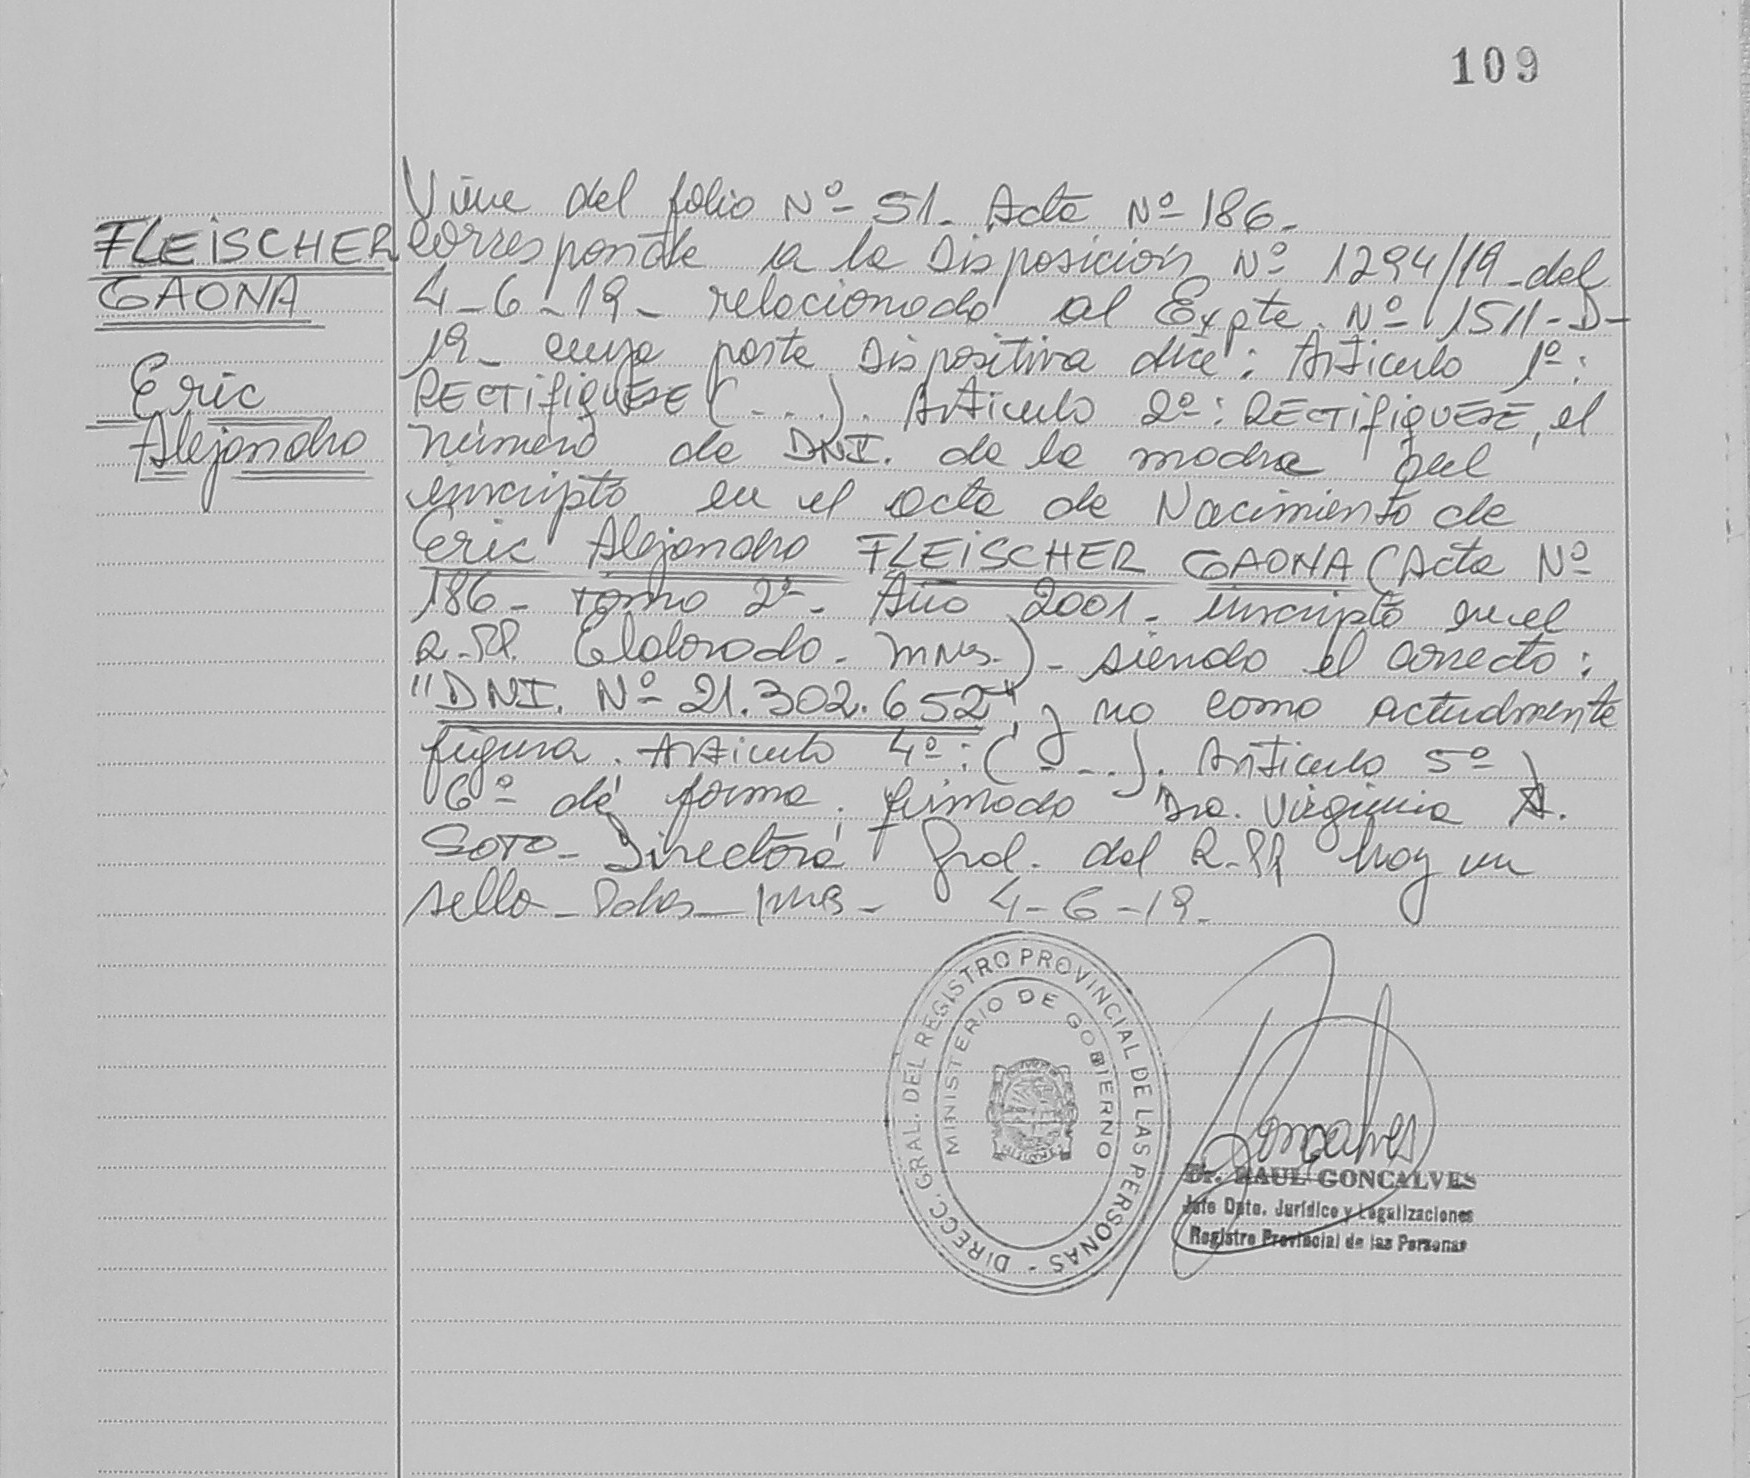 109
Viene del folio Nº 51. Acta Nº 186.
FLEISCHER
GAONA
Eric
Alejandro
corresponde a la Disposición Nº 1294/19 del
4-6-19- relacionado al Expte. Nº 1511-D-
19- cuya parte Dispositiva dice: Artículo 1º:
RECTIFIQUESE (....). Artículo 2º: RECTIFIQUESE, el
número de DNI. de la madre del
inscripto en el acta de Nacimiento de
Eric Alejandro FLEISCHER GAONA (Acta Nº
186- Tomo 2º- Año 2001- inscripto en el
R.PP. Eldorado- Mnes.)- siendo el correcto:
"DNI. Nº 21.302.652", y no como actualmente
figura. Artículo 4º: (....). Artículo 5º y
6º de forma. firmado Dra. Virginia A.
SOTO- Directora Gral. del R.PP hay un
sello- Pdas- Mnes- 4-6-19.
DIRECC. GRAL. DEL REGISTRO PROVINCIAL DE LAS PERSONAS -
MINISTERIO DE GOBIERNO
MISIONES
Goncalves
Dr. RAUL GONCALVES
Jefe Dpto. Jurídico y Legalizaciones
Registro Provincial de las Personas